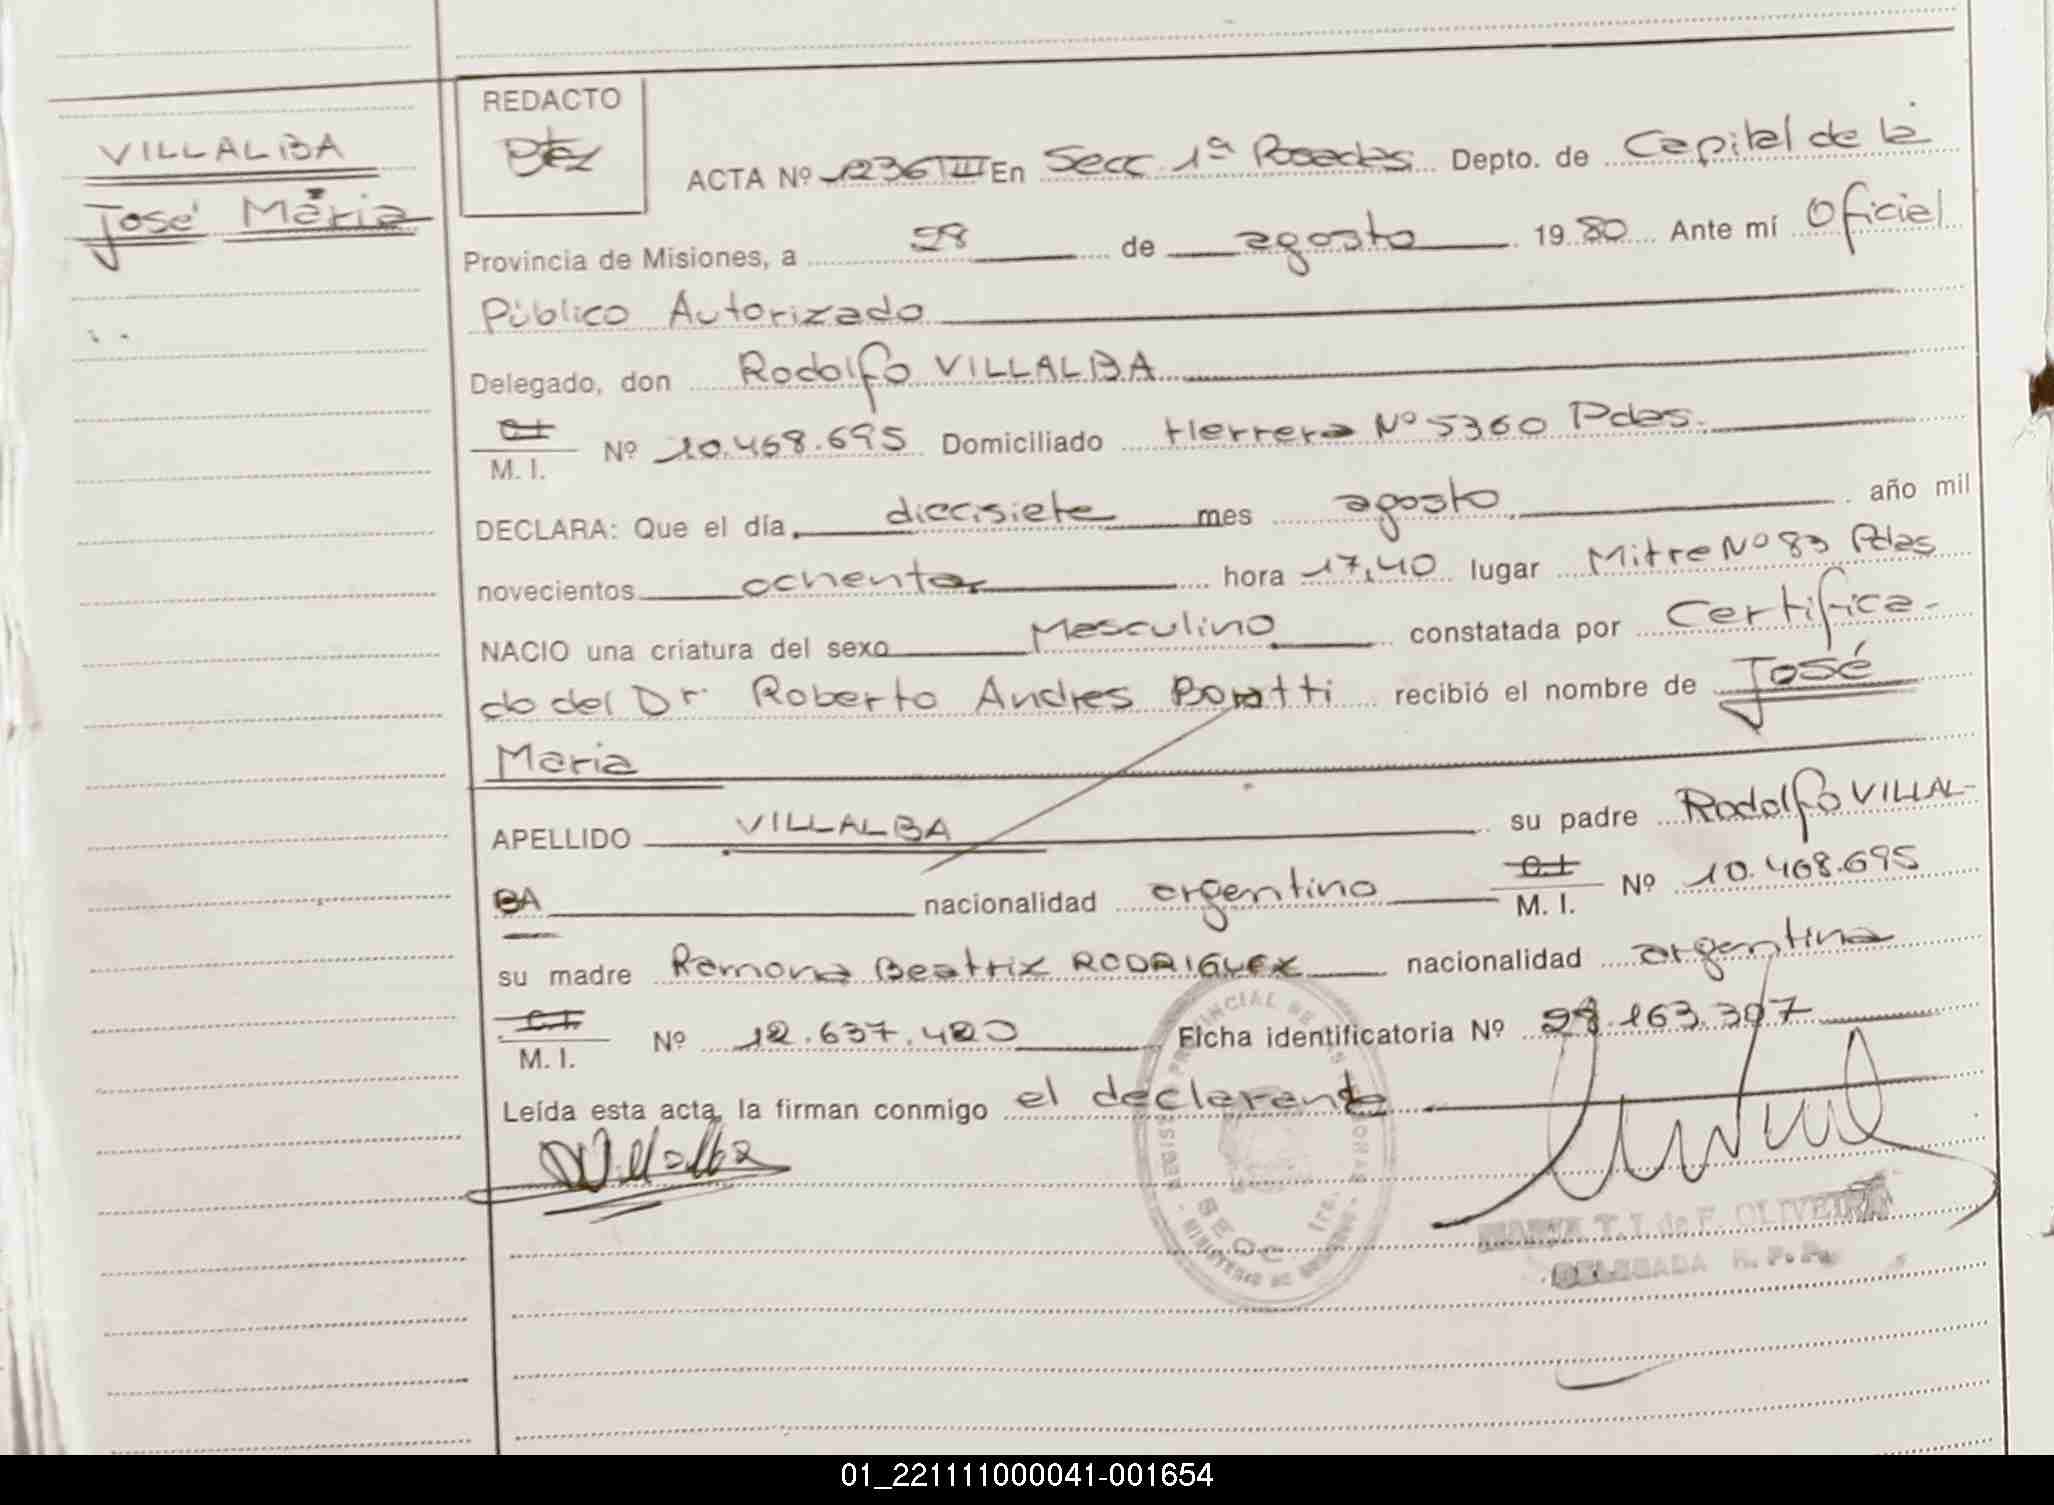 VILLALBA
José Maria
REDACTO
ACTA Nº 1236 III En Secc. 1ª Posadas Depto. de Capital de la
Provincia de Misiones, a 28 de agosto 1980 Ante mí Oficial
Público Autorizado
Delegado, don Rodolfo VILLALBA
C.I.
M. I. Nº 10.468.695 Domiciliado Herrera Nº 5360 Pdas.
DECLARA: Que el día diecisiete mes agosto año mil
novecientos ochenta hora 17,40 lugar Mitre Nº 83 Pdas
NACIO una criatura del sexo Masculino constatada por Certifica-
do del Dr. Roberto Andres Boratti recibió el nombre de José
Maria
APELLIDO VILLALBA su padre Rodolfo VILLAL-
BA nacionalidad argentino C.I. M. I. Nº 10.468.695
su madre Ramona Beatriz RODRIGUEZ nacionalidad argentina
C.I.
M. I. Nº 12.637.420 Ficha identificatoria Nº 28.163.307
Leída esta acta, la firman conmigo el declarante
Villalba
REGISTRO PROVINCIAL DE LAS PERSONAS
SECC. 1ra.
MINISTERIO DE GOBIERNO
MARIA T. T. de F. OLIVEIRA
DELEGADA R. P. P.
01_221111000041-001654